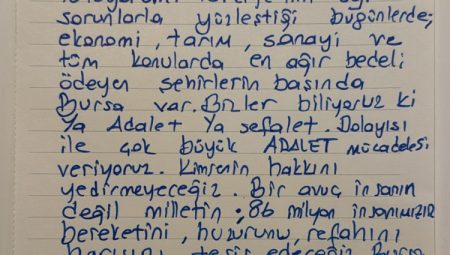 sorunlarla yüzleştiği bugünlerde;
ekonomi, tarım, sanayi ve
tüm konularda en ağır bedeli
ödeyen şehirlerin başında
Bursa var. Bizler biliyoruz ki
Ya Adalet Ya sefalet. Dolayısı
ile çok büyük ADALET mücadelesi
veriyoruz. Kimsenin hakkını
yedirmeyeceğiz. Bir avuç insanın
değil milletin, 86 milyon insanımızın
bereketini, huzurunu, refahını